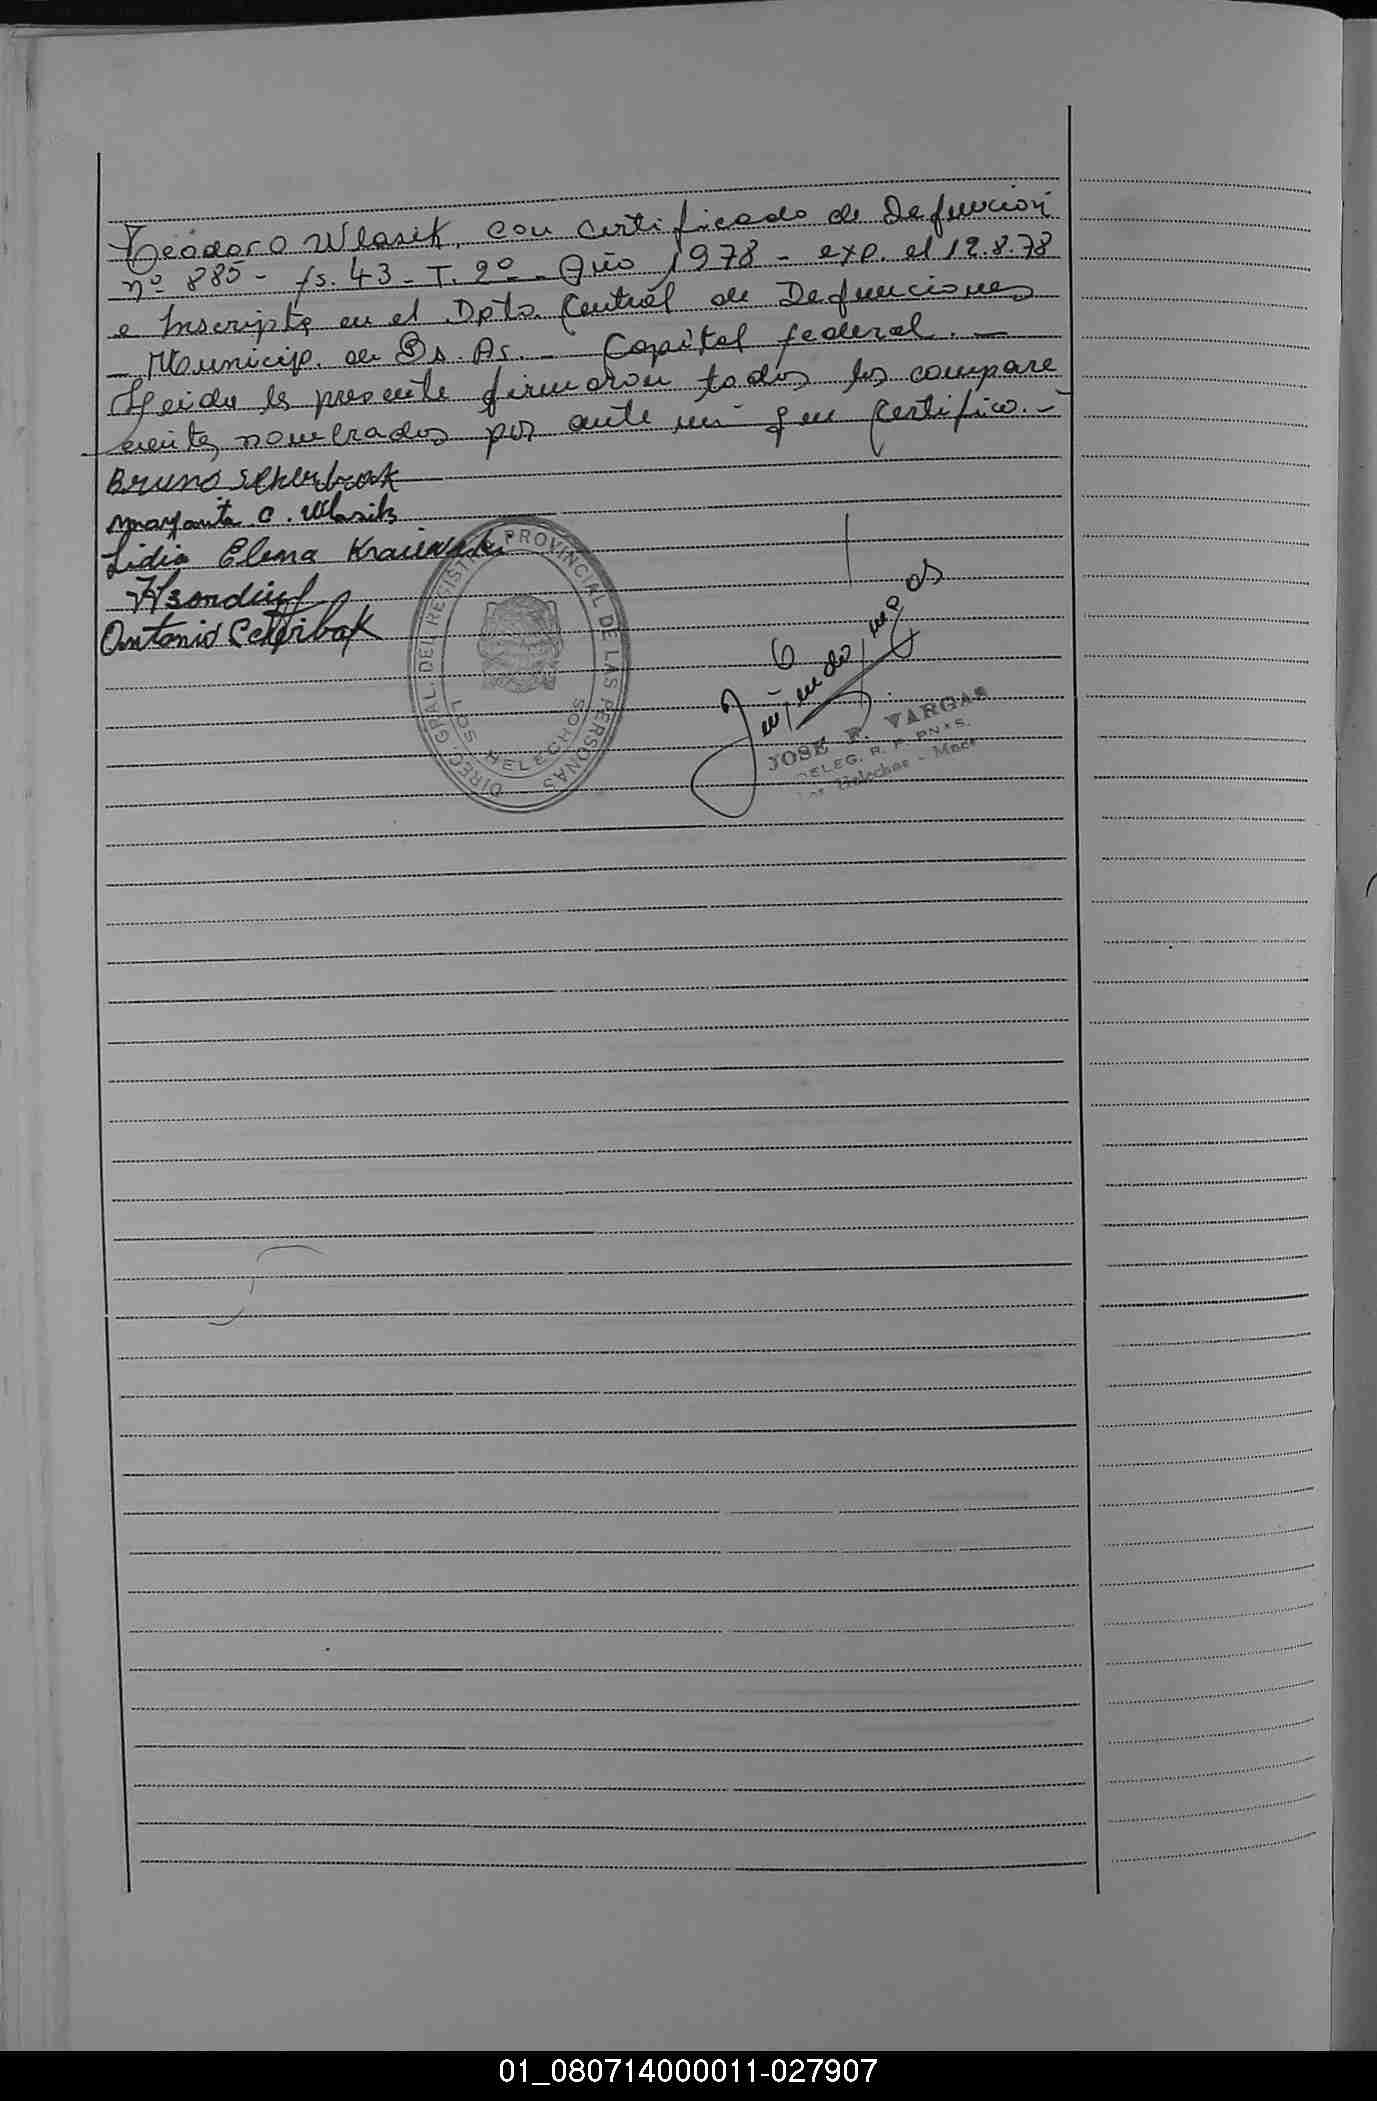 Teodoro Wlasik, con certificado de Defunción
nº 885 - fs. 43 - T. 2º - Año 1978 - exp. el 12.8.78
e Inscripta en el Dpto. Central de Defunciones
- Municip. de Bs. As. - Capital federal. -
Leida la presente firmaron todos los compare
cientes nombrados por ante mi que Certifico. -
Bruno
Margarita C. Wlasik
Lidia Elena
Antonio
DIREC. GRAL. DEL REGISTRO PROVINCIAL DE LAS PERSONAS
LOS HELECHOS
JOSE F. VARGAS
DELEG. R. P. PNAS.
Los Helechos - Mnes
01_080714000011-027907